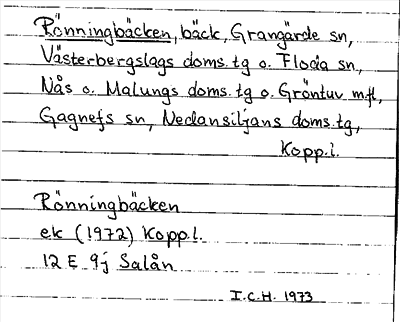 Rönningbäcken, bäck, Grangärde sn,
Västerbergslags doms.tg o. Floda sn,
Nås o. Malungs doms.tg o. Gröntuv m.fl,
Gagnefs sn, Nedansiljans doms.tg,
Kopp.l.
Rönningbäcken
ek (1972) Kopp.l.
12 E 9j Salån
I.C.H. 1973